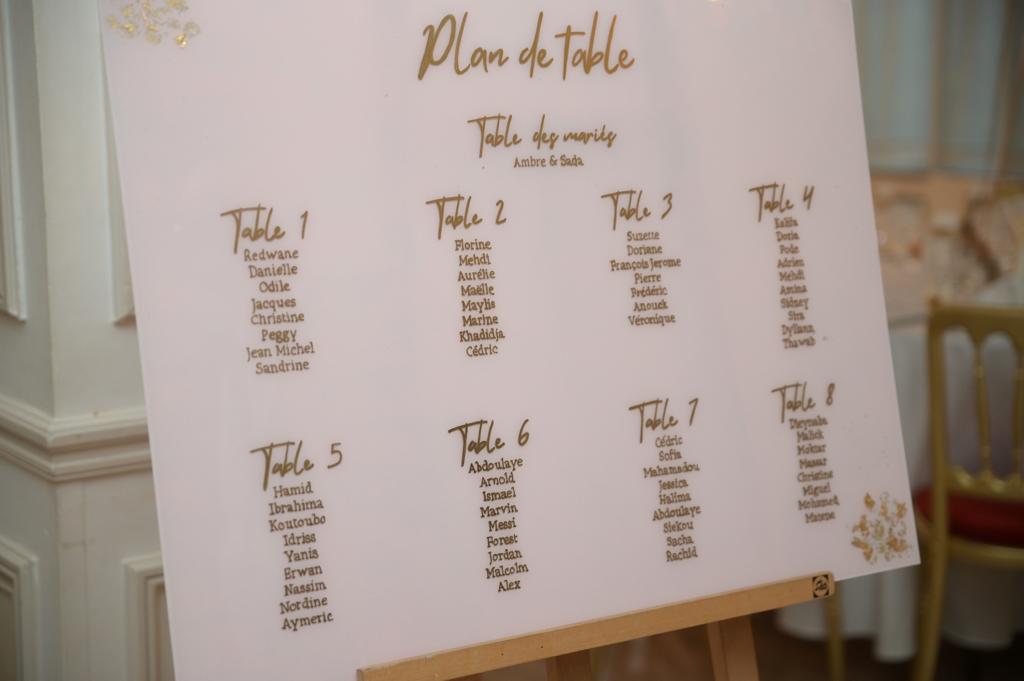 Plan de table
Table des mariés
Ambre & Sada
Table 1
Redwane
Danielle
Odile
Jacques
Christine
Peggy
Jean Michel
Sandrine
Table 2
Florine
Mehdi
Aurélie
Maëlle
Maylis
Marine
Khadidja
Cédric
Table 3
Suzette
Doriane
François Jerome
Pierre
Frédéric
Anouck
Véronique
Table 4
Kalifa
Doria
Fode
Adrien
Mehdi
Amina
Sidney
Sira
Dyllann
Thawab
Table 5
Hamid
Ibrahima
Koutoubo
Idriss
Yanis
Erwan
Nassim
Nordine
Aymeric
Table 6
Abdoulaye
Arnold
Ismael
Marvin
Messi
Forest
Jordan
Malcolm
Alex
Table 7
Cédric
Sofia
Mahamadou
Jessica
Halima
Abdoulaye
Siekou
Sacha
Rachid
Table 8
Dieynaba
Malick
Moktar
Massar
Christine
Miguel
Mohamed